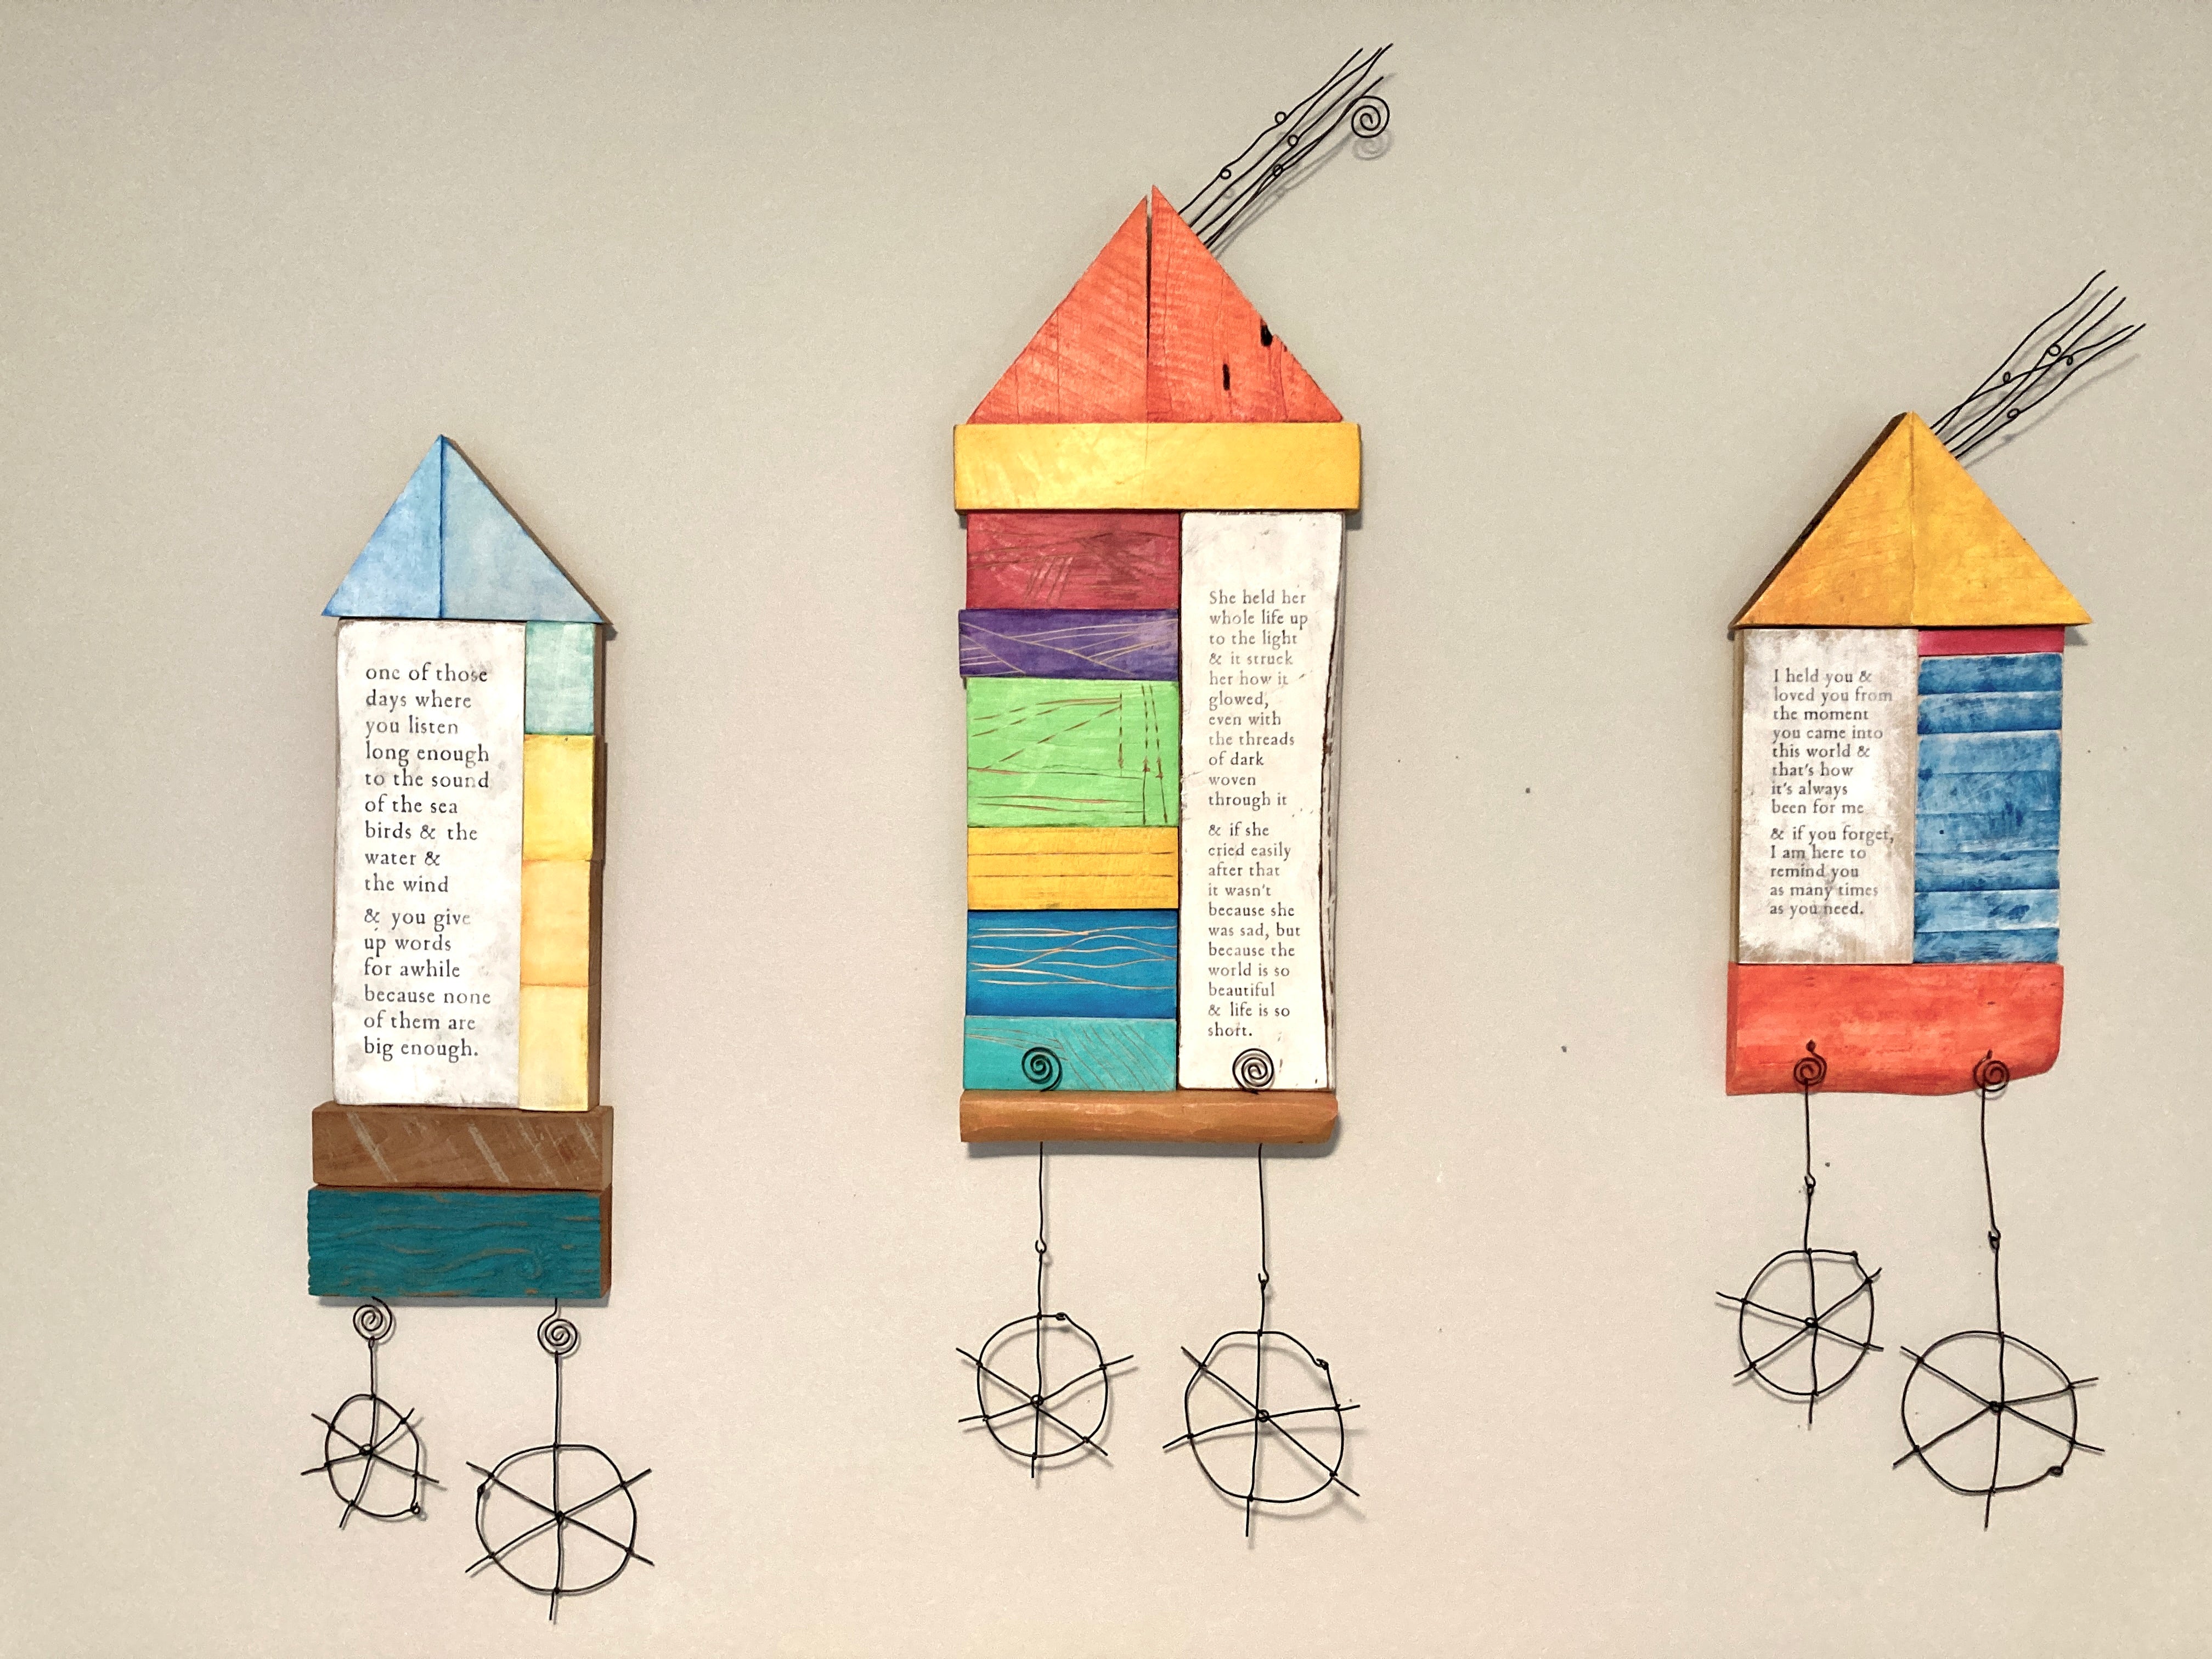 one of those
days where
you listen
long enough
to the sound
of the sea
birds & the
water &
the wind
& you give
up words
for awhile
because none
of them are
big enough.
She held her
whole life up
to the light
& it struck
her how it
glowed,
even with
the threads
of dark
woven
through it
& if she
cried easily
after that
it wasn't
because she
was sad, but
because the
world is so
beautiful
& life is so
short.
I held you &
loved you from
the moment
you came into
this world &
that's how
it's always
been for me
& if you forget,
I am here to
remind you
as many times
as you need.